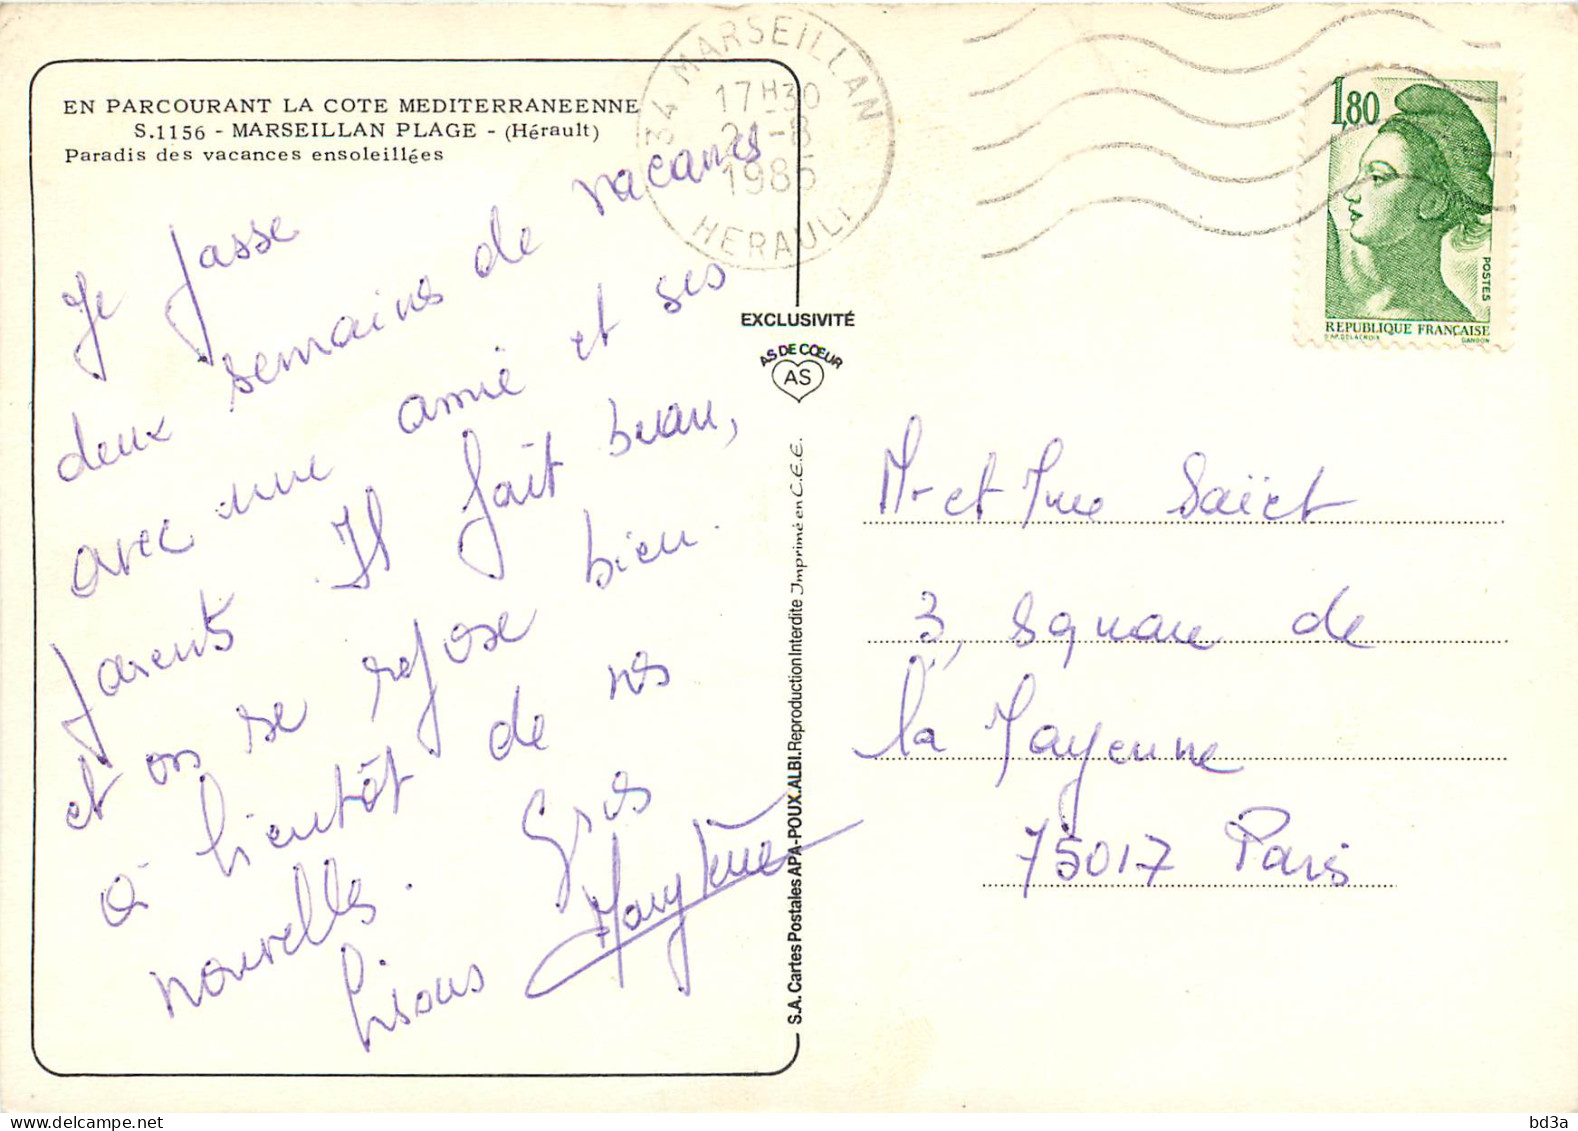 EN PARCOURANT LA COTE MEDITERRANEENNE
S.1156 - MARSEILLAN PLAGE - (Hérault)
Paradis des vacances ensoleillées
Je passe
deux semaines de vacances
avec une amie et ses
parents. Il fait beau,
et on se repose bien.
à bientôt de vos
nouvelles. Gros
bisous
34 MARSEILLAN
17H30
1985
HERAULT
EXCLUSIVITÉ
AS DE CŒUR
AS
S.A. Cartes Postales APA-POUX.ALBI. Reproduction Interdite Imprimé en C.E.E.
1,80
POSTES
REPUBLIQUE FRANÇAISE
D'AP. DELACROIX GANDON
Mr et Mme
3, square de
la Mayenne
75017 Paris
bd3a